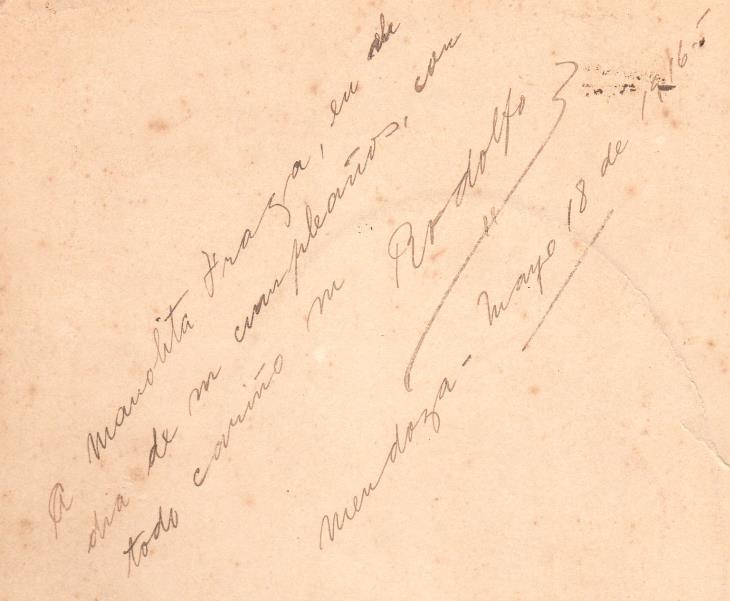 A Manolita Fraga, en el
dia de su cumpleaños, con
todo cariño su Rodolfo
Mendoza - Mayo 18 de 1916-